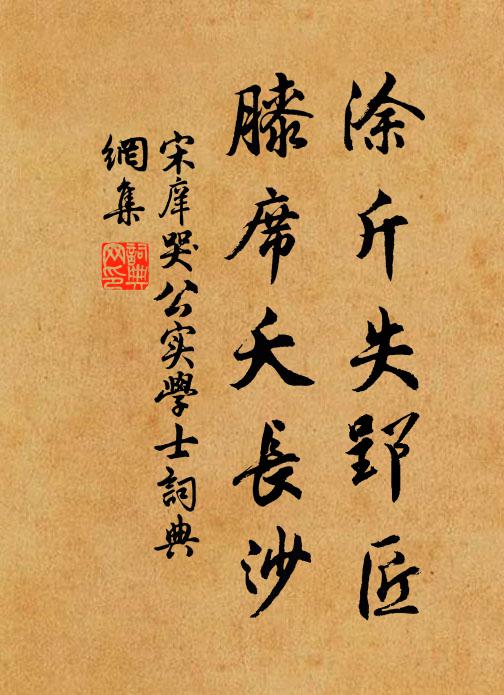 涂斤失郢匠
膝席夭長沙
宋庠哭公实學士詞典
網集
詞典
网印